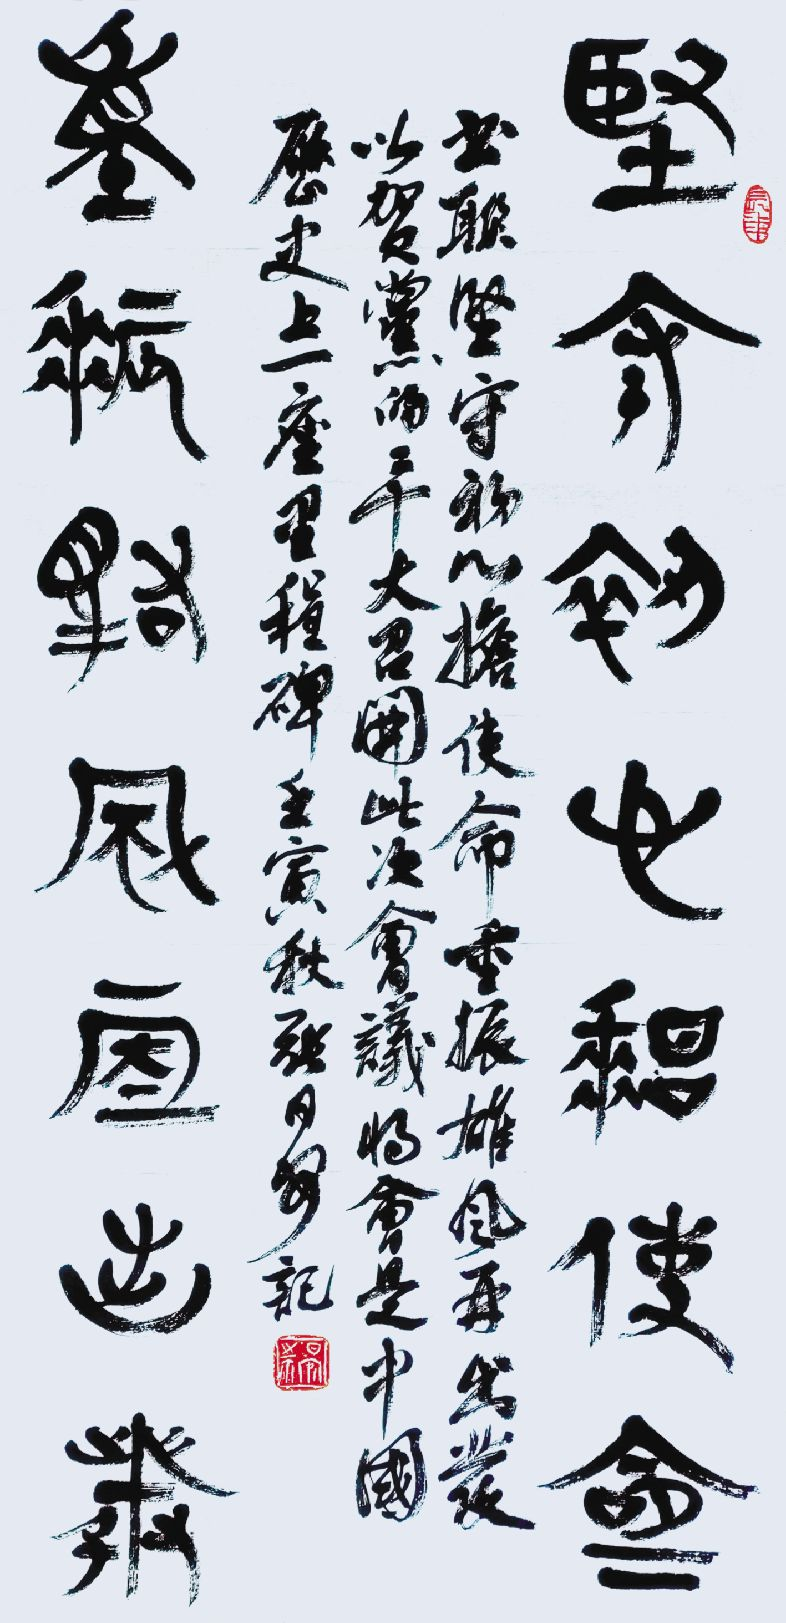 堅守初心擔使命
書聯堅守初心擔使命重振雄風再出發
以賀黨的二十大召開此次會議將會是中國
歷史上一座里程碑壬寅秋記
重振雄風再出發